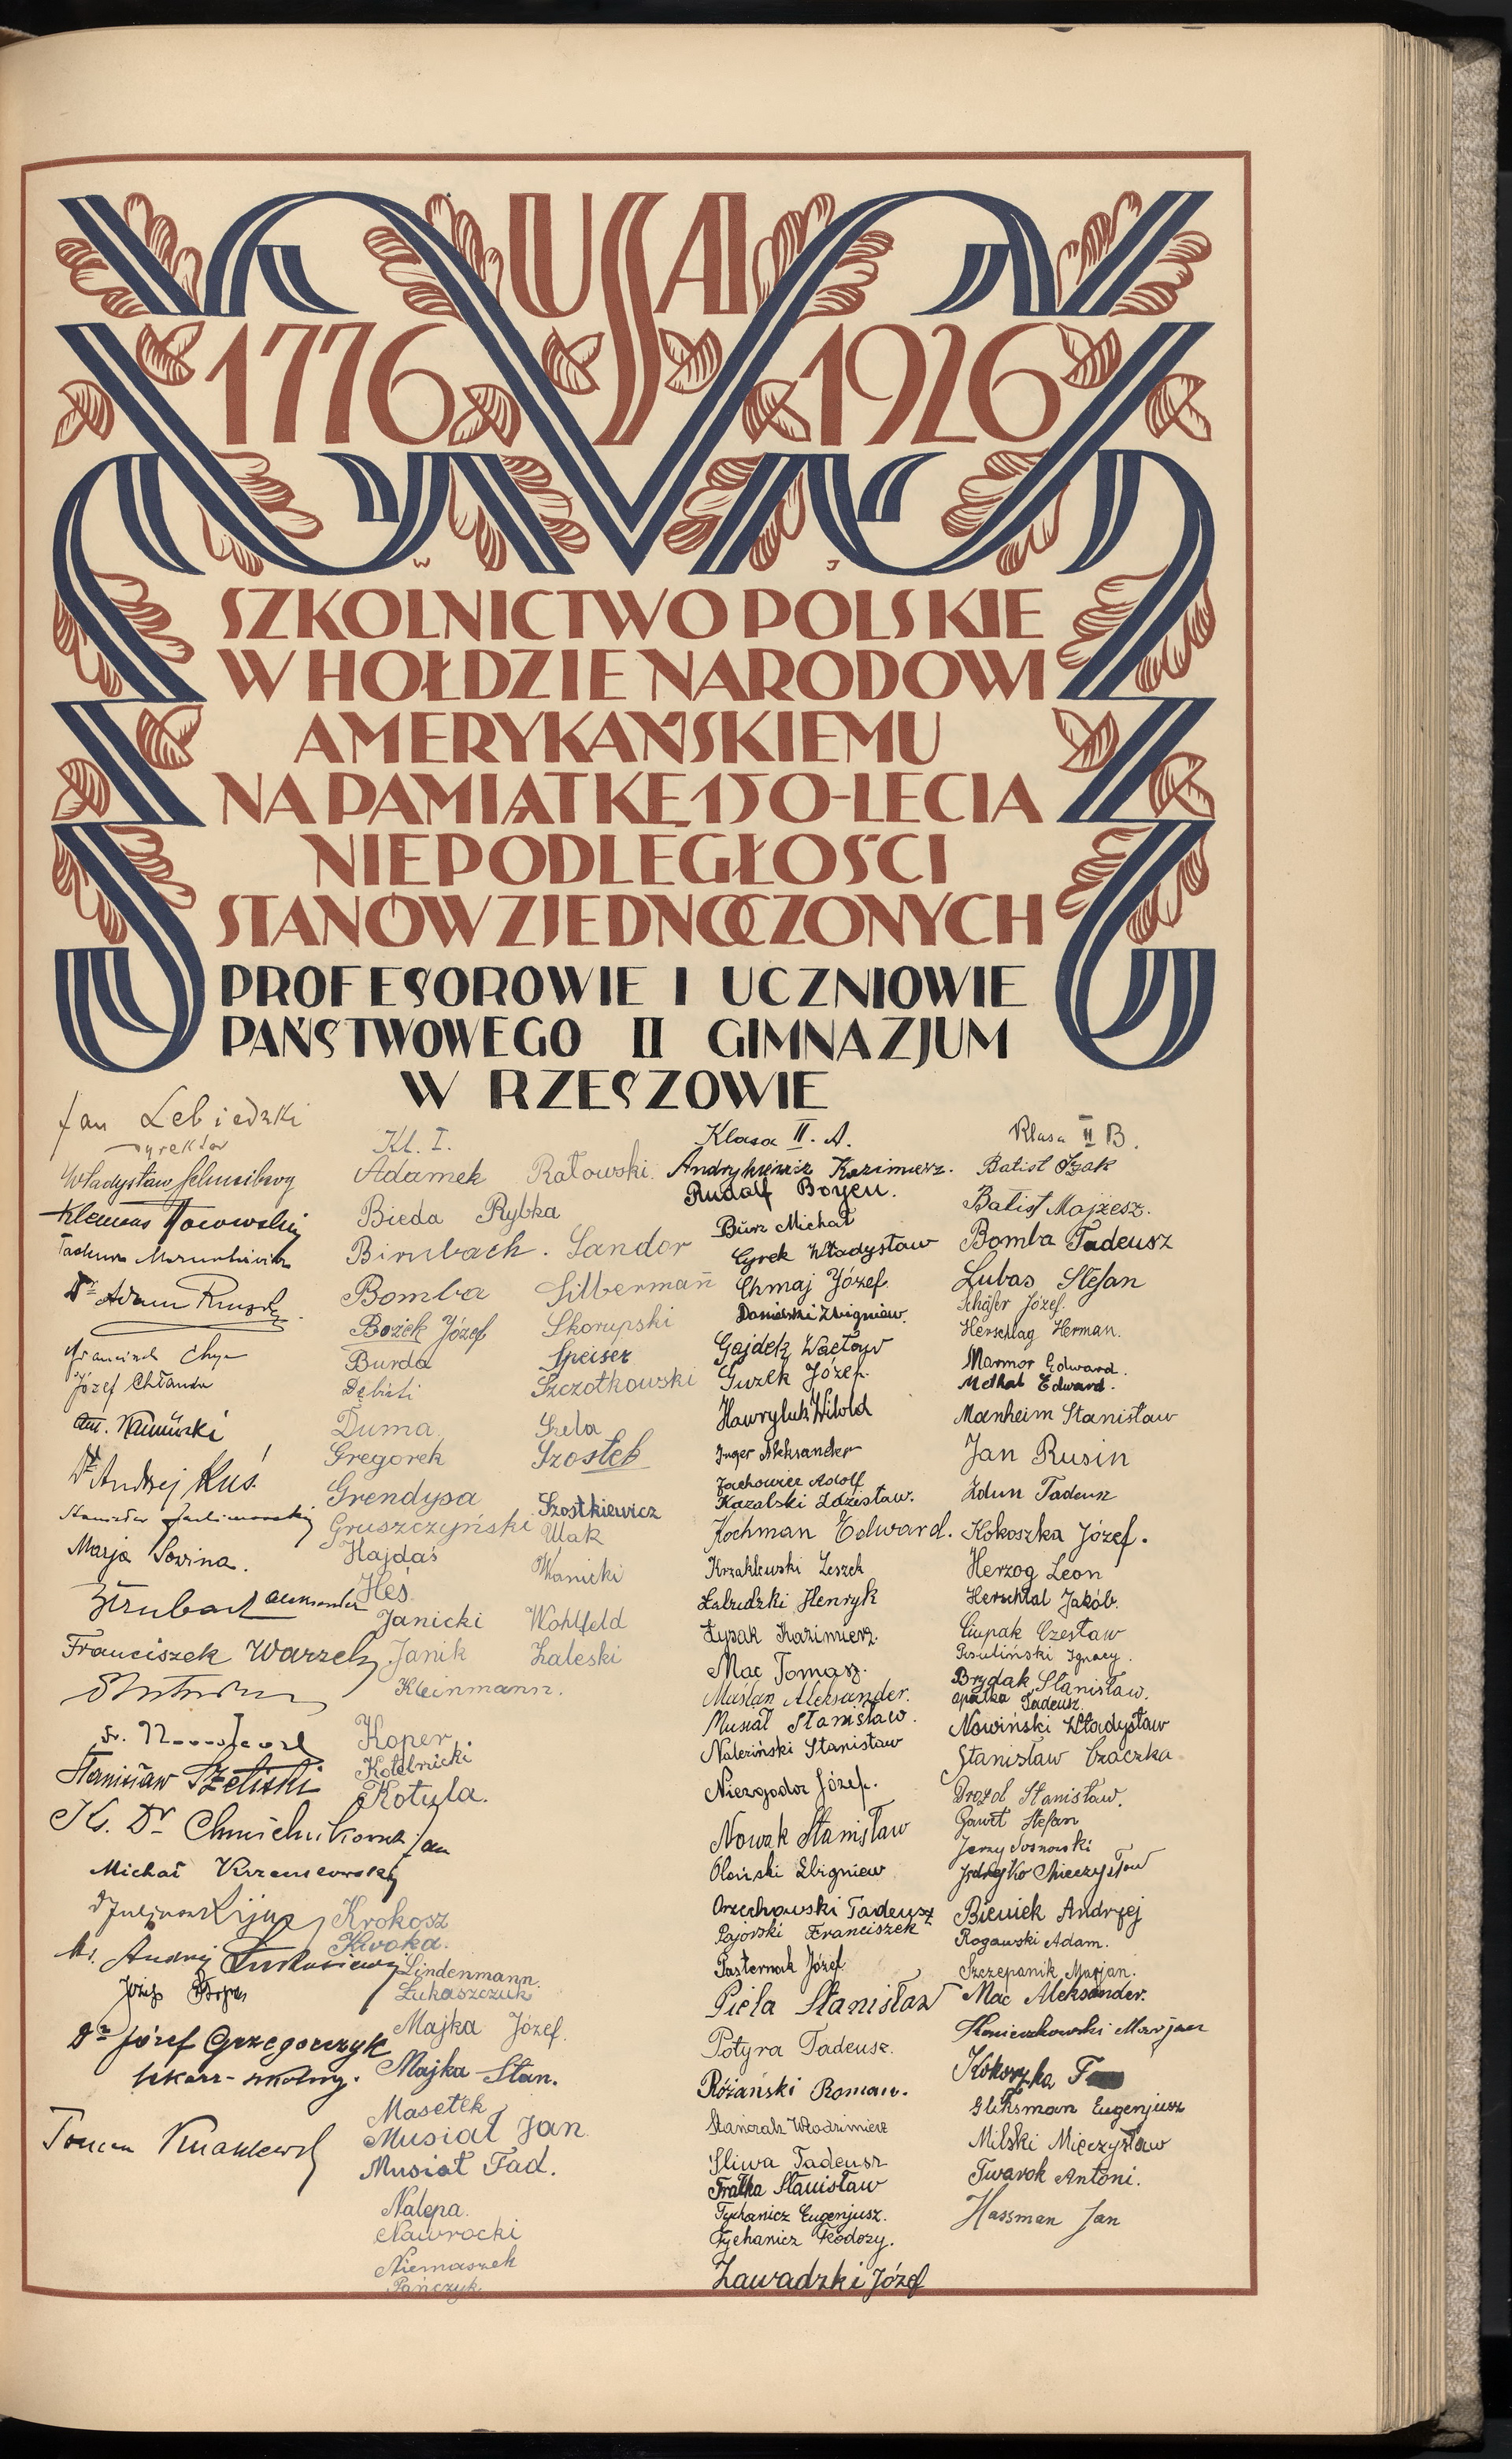 USA
1776 1926
W J
SZKOLNICTWO POLSKIE
W HOŁDZIE NARODOWI
AMERYKAŃSKIEMU
NA PAMIĄTKĘ 150-LECIA
NIEPODLEGŁOŚCI
STANÓW ZJEDNOCZONYCH
PROFESOROWIE I UCZNIOWIE
PAŃSTWOWEGO II GIMNAZJUM
W RZESZOWIE
Jan Lebiedzki
dyrektor
Władysław
Klemens
Dr Adam
Józef Chłanda
Ant. Kamiński
Dr Andrzej Kuś.
Stanisław
Marja Sowina.
Aleksander
Franciszek Warzeły
Fr.
Stanisław Szeliski
Ks. Dr Jan
Michał
Andrzej
Józef
Dr Józef Grzegorczyk
lekarz-szkolny.
Kl. I.
Adamek
Bieda
Birnbach.
Bomba
Bożek Józef
Burda
Duma
Gregorek
Grendysa
Gruszczyński
Hajdaś
Heś
Janicki
Janik
Kleinmann.
Koper
Kotelnicki
Kotula.
Krokosz
Kwoka.
Lindenmann.
Łukaszczuk
Majka Józef.
Majka Stan.
Masełek
Musiał Jan
Musiał Tad.
Nalepa.
Nawrocki
Niemaszek
Pańczyk
Ratowski.
Rybka
Sandor
Silberman
Skorupski
Speiser
Szczotkowski
Szela
Szostek
Szostkiewicz
Ulak
Wanicki
Wohlfeld
Zaleski
Klasa II. A.
Andrykiewicz Kazimierz.
Rudolf Boyen.
Bürz Michał
Cyrek Władysław
Chmaj Józef.
Danielski Zbigniew.
Gajdek Wacław
Guzek Józef.
Hawryluk Witold
Inger Aleksander
Jachowicz Adolf
Kazalski Zdzisław.
Kochman Edward.
Krzaklewski Leszek
Łabudzki Henryk
Łyzak Kazimierz.
Mac Tomasz.
Maślan Aleksander.
Musiał Stanisław.
Naleziński Stanisław
Niezgoda Józef.
Nowak Stanisław
Oloński Zbigniew
Orzechowski Tadeusz
Pajorski Franciszek
Pasternak Józef
Piela Stanisław
Potyra Tadeusz.
Różański Roman.
Stańczak Włodzimierz
Śliwa Tadeusz
Frałka Stanisław
Tychanicz Eugenjusz.
Tychanicz Teodozy.
Zawadzki Józef
Klasa II B.
Batist Izak
Batist Majżesz.
Bomba Tadeusz
Lubas Stefan
Schäfer Józef.
Herschlag Herman.
Marmor Edward.
Methal Edward.
Manheim Stanisław
Jan Rusin
Zdun Tadeusz
Kokoszka Józef.
Herzog Leon
Herschtal Jakób.
Ciupak Czesław
Ignacy.
Brydak Stanisław.
Opałka Tadeusz.
Nowiński Władysław
Stanisław Czaczka
Drozd Stanisław.
Gaweł Stefan
Jerzy Sosnowski
Mieczysław
Bieniek Andrzej
Rogowski Adam.
Szczepanik Marjan.
Mac Aleksander.
Konieczkowski Marjan
Kokoszka
Gliksman Eugenjusz
Milski Mieczysław
Twarok Antoni.
Hassman Jan